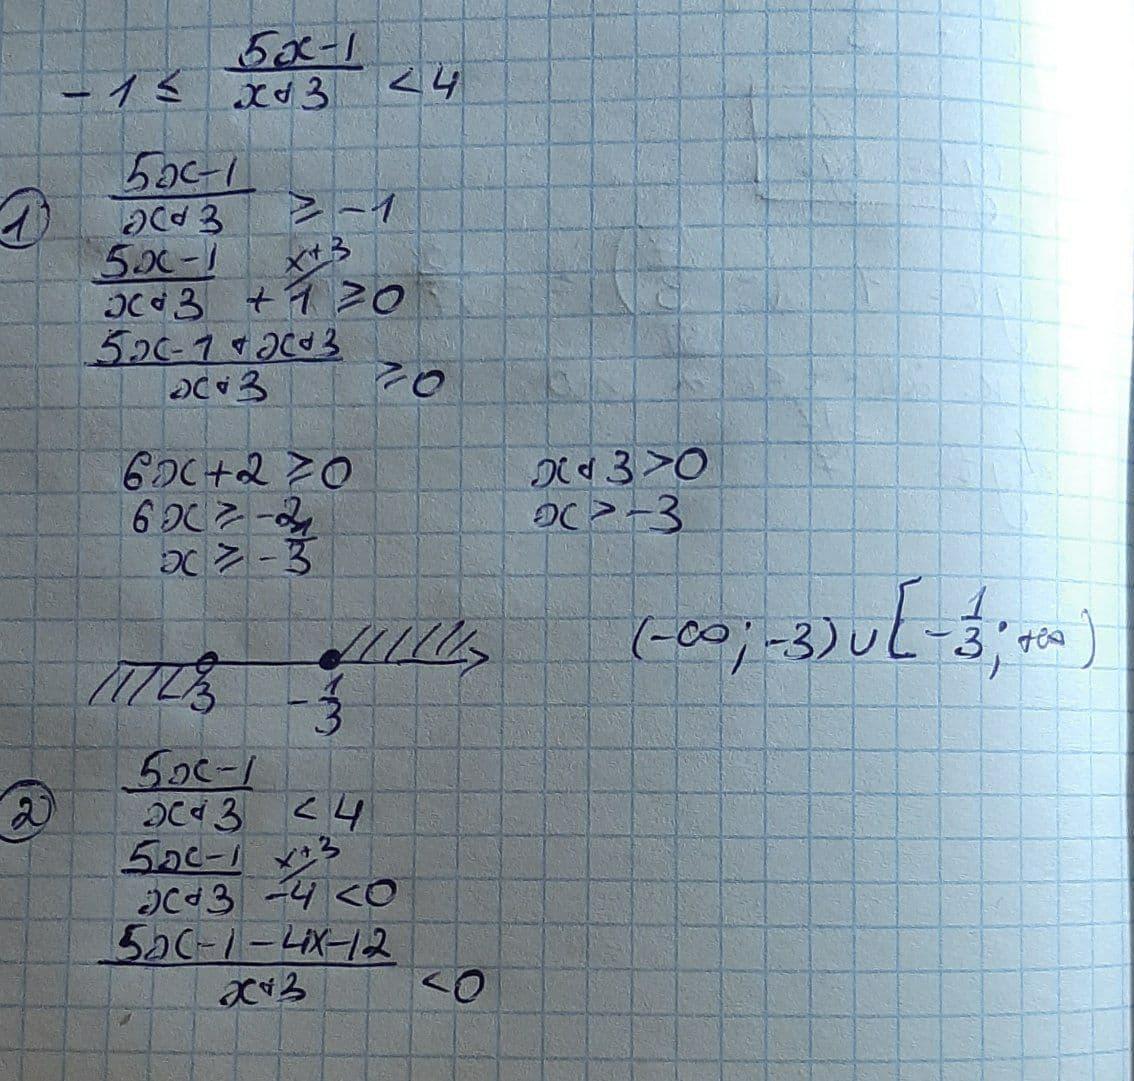 -1 ≤ (5x-1)/(x+3) < 4
① (5x-1)/(x+3) ≥ -1
(5x-1)/(x+3) + 1 / x+3 ≥ 0
(5x-1+x+3)/(x+3) ≥ 0
6x+2 ≥ 0 x+3 > 0
6x ≥ -2 x > -3
x ≥ -1/3
(-∞; -3) ∪ [-1/3; +∞)
-3 -1/3
② (5x-1)/(x+3) < 4
(5x-1)/(x+3) - 4 / x+3 < 0
(5x-1-4x-12)/(x+3) < 0